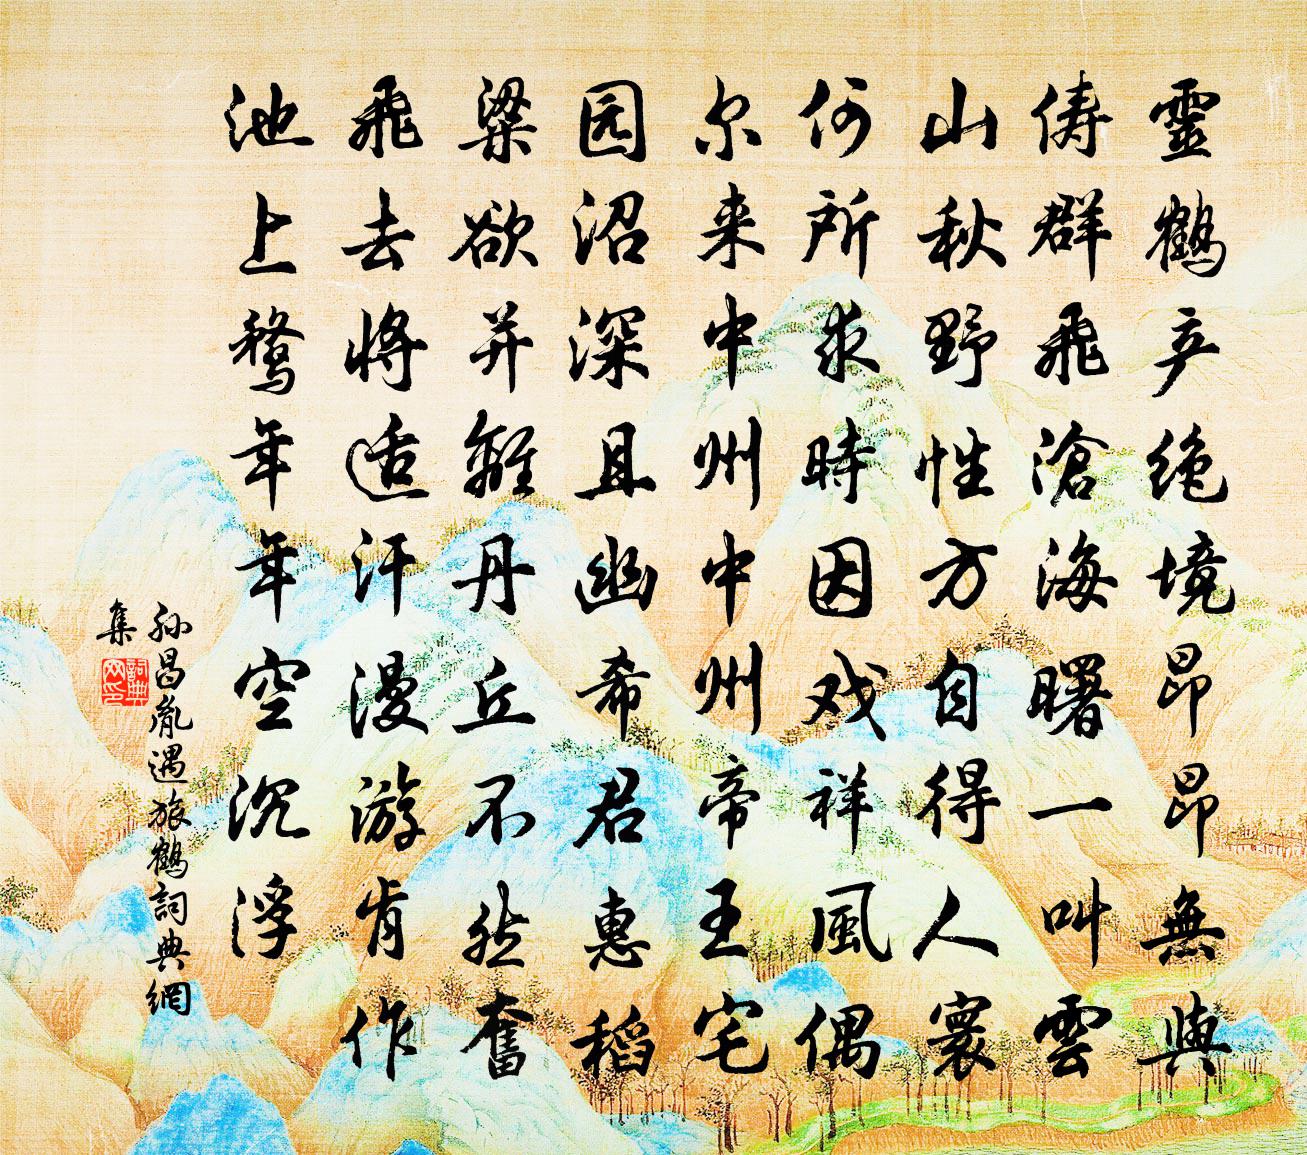 靈鶴产绝境昂昂無與
俦群飛滄海曙一叫雲
山秋野性方自得人寰
何所求時因戏祥風偶
尔来中州中州帝王宅
园沼深且幽希君惠稻
粱欲并離丹丘不然奮
飛去将适汗漫游肯作
池上鶩年年空沉浮
孙昌胤遇旅鶴詞典網
集
詞典
网印